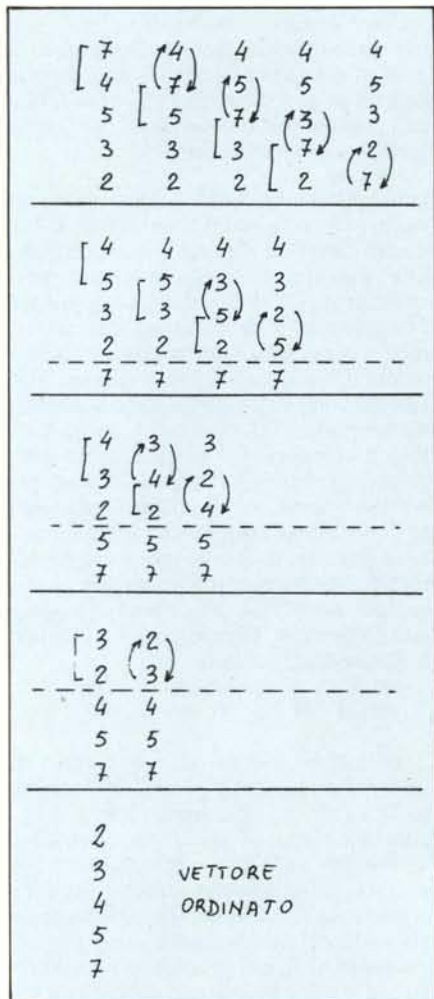 7 4 4 4 4
4 7 5 5 5
5 5 7 3 3
3 3 3 7 2
2 2 2 2 7
4 4 4 4
5 5 3 3
3 3 5 2
2 2 2 5
7 7 7 7
4 3 3
3 4 2
2 2 4
5 5 5
7 7 7
3 2
2 3
4 4
5 5
7 7
2
3 VETTORE
4 ORDINATO
5
7